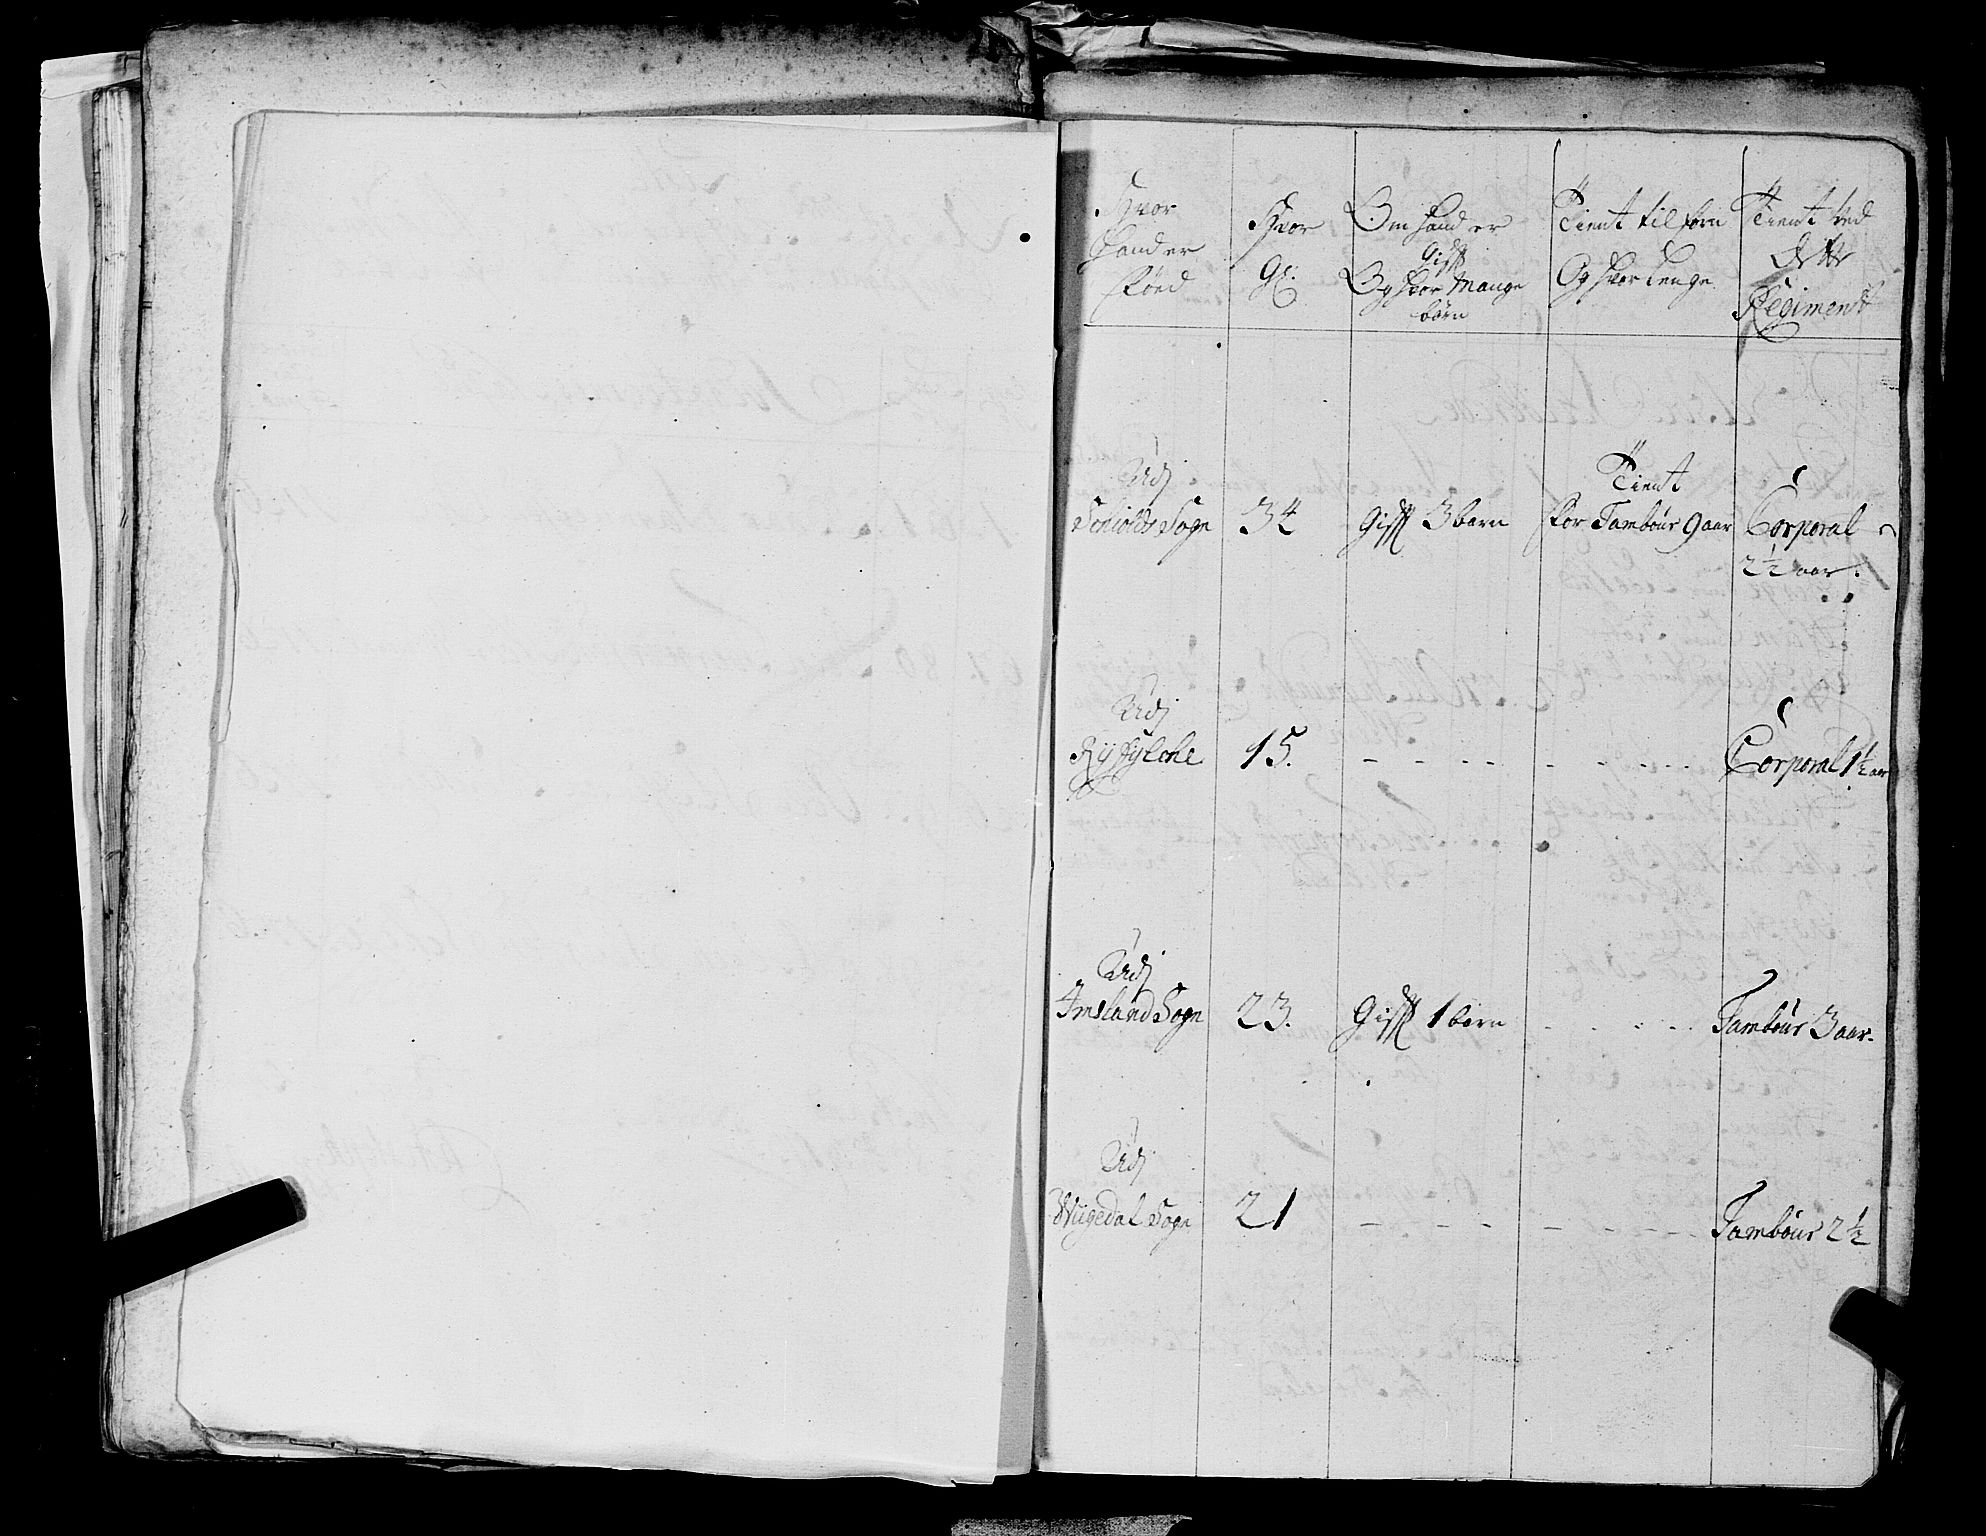 Hvor
hand er
føed
Hvor
Gl:
Om hand er
Gifft
Og hvor Mange
børn
Tient tilforn
Og hvor lenge
Tient ved
dette
Regiment
Udj
Schiolds Sogn
34
Gifft 3 børn
Tient
for Tambour 9 aar
Corporal
2½ aar.
Udj
Ryfylche
15.
Corporal 1½ aar
Udj
Imsland Sogn
23.
Gifft 1 barn
Tambour 3 aar.
Udj
Wigedal Sogn
21
Tambour 2½